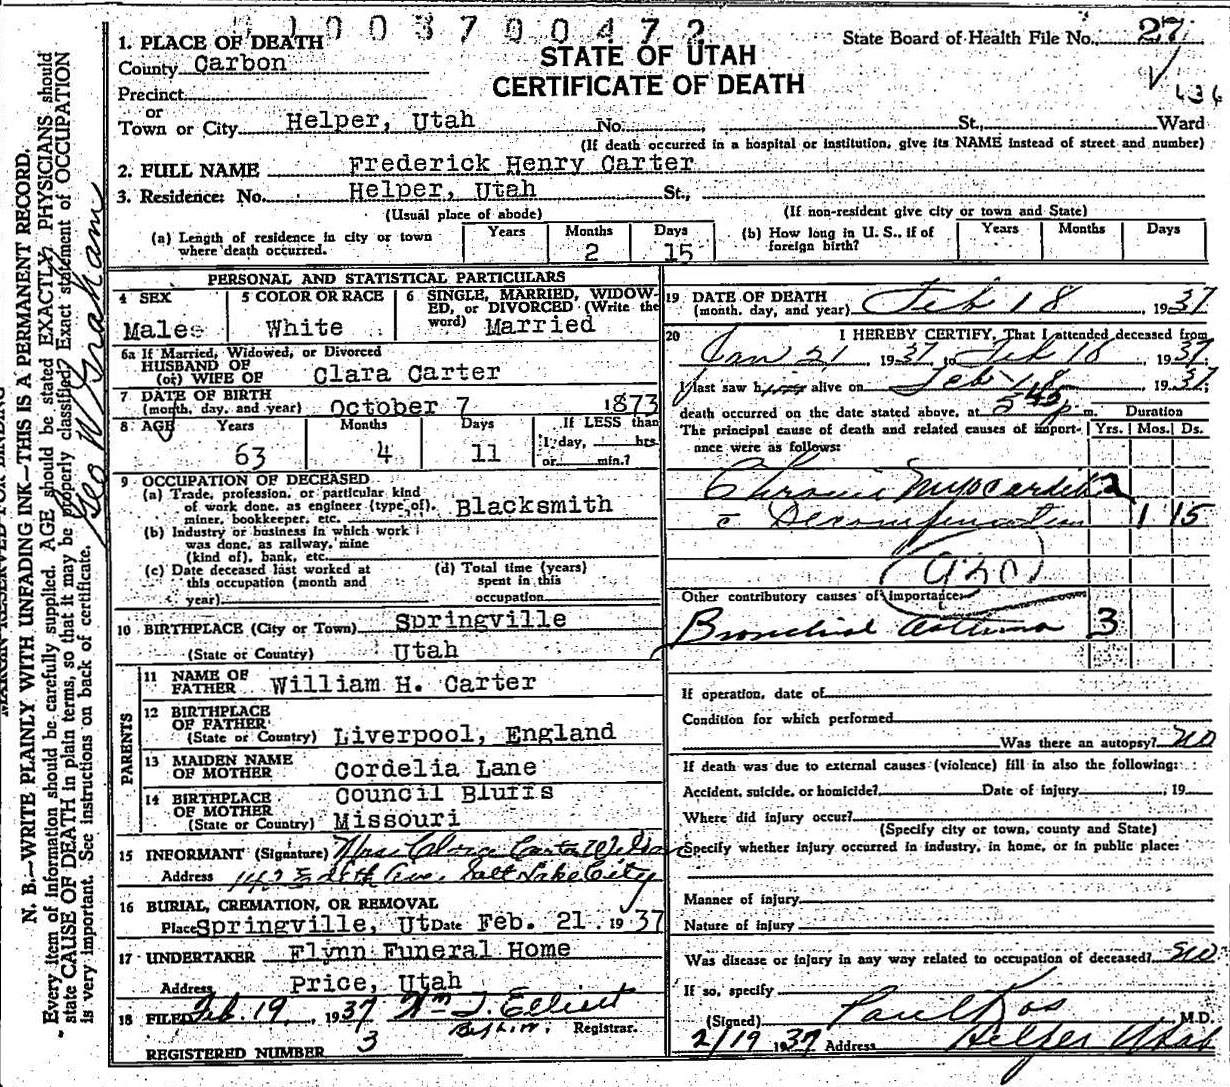 1 0 0 3 7 9 0 4 7 2
State Board of Health File No. 27
1. PLACE OF DEATH
County Carbon
STATE OF UTAH
CERTIFICATE OF DEATH
Precinct
or
Town or City Helper, Utah No. , St., Ward
(If death occurred in a hospital or institution, give its NAME instead of street and number)
2. FULL NAME Frederick Henry Carter
3. Residence: No. Helper, Utah St.,
(Usual place of abode) (If non-resident give city or town and State)
(a) Length of residence in city or town where death occurred. Years Months 2 Days 15
(b) How long in U. S., if of foreign birth? Years Months Days
PERSONAL AND STATISTICAL PARTICULARS
4 SEX Male
5 COLOR OR RACE White
6 SINGLE, MARRIED, WIDOWED, or DIVORCED (Write the word) Married
6a If Married, Widowed, or Divorced
HUSBAND OF
(or) WIFE OF Clara Carter
7 DATE OF BIRTH
(month, day, and year) October 7 1873
8 AGE Years 63 Months 4 Days 11 If LESS than 1 day, hrs. or min.?
9 OCCUPATION OF DECEASED
(a) Trade, profession, or particular kind
of work done, as engineer (type of),
miner, bookkeeper, etc. Blacksmith
(b) Industry or business in which work
was done, as railway, mine
(kind of), bank, etc.
(c) Date deceased last worked at
this occupation (month and
year)
(d) Total time (years)
spent in this
occupation
10 BIRTHPLACE (City or Town) Springville
(State or Country) Utah
PARENTS
11 NAME OF FATHER William H. Carter
12 BIRTHPLACE OF FATHER
(State or Country) Liverpool, England
13 MAIDEN NAME OF MOTHER Cordelia Lane
14 BIRTHPLACE OF MOTHER Council Bluffs
(State or Country) Missouri
15 INFORMANT (Signature) Mrs. Clara Carter
Address 142 E Ave. Salt Lake City
16 BURIAL, CREMATION, OR REMOVAL
Place Springville, Ut Date Feb. 21. 1937
17 UNDERTAKER Flynn Funeral Home
Address Price, Utah
18 FILED Feb. 19, 1937 Wm J. Elliott
Registrar.
REGISTERED NUMBER 3
19 DATE OF DEATH
(month, day, and year) Feb 18 1937
20 I HEREBY CERTIFY, That I attended deceased from
Jan 21 1937 to Feb 18 1937
I last saw him alive on Feb 18 1937;
death occurred on the date stated above, at 5 40 p m. Duration
The principal cause of death and related causes of importance were as follows: Yrs. Mos. Ds.
Chronic Myocarditis 2
c̄ Decompensation 1 15
Other contributory causes of importance:
Bronchial asthma 3
If operation, date of
Condition for which performed
Was there an autopsy? no
If death was due to external causes (violence) fill in also the following:
Accident, suicide, or homicide? Date of injury , 19
Where did injury occur?
(Specify city or town, county and State)
Specify whether injury occurred in industry, in home, or in public place:
Manner of injury
Nature of injury
Was disease or injury in any way related to occupation of deceased? no
If so, specify
(Signed) Paul Kos , M.D.
2/19 1937 Address Helper Utah
N. B.—WRITE PLAINLY WITH UNFADING INK—THIS IS A PERMANENT RECORD.
Every item of information should be carefully supplied. AGE should be stated EXACTLY. PHYSICIANS should
state CAUSE OF DEATH in plain terms, so that it may be properly classified. Exact statement of OCCUPATION
is very important. See instructions on back of certificate.
Geo W Graham